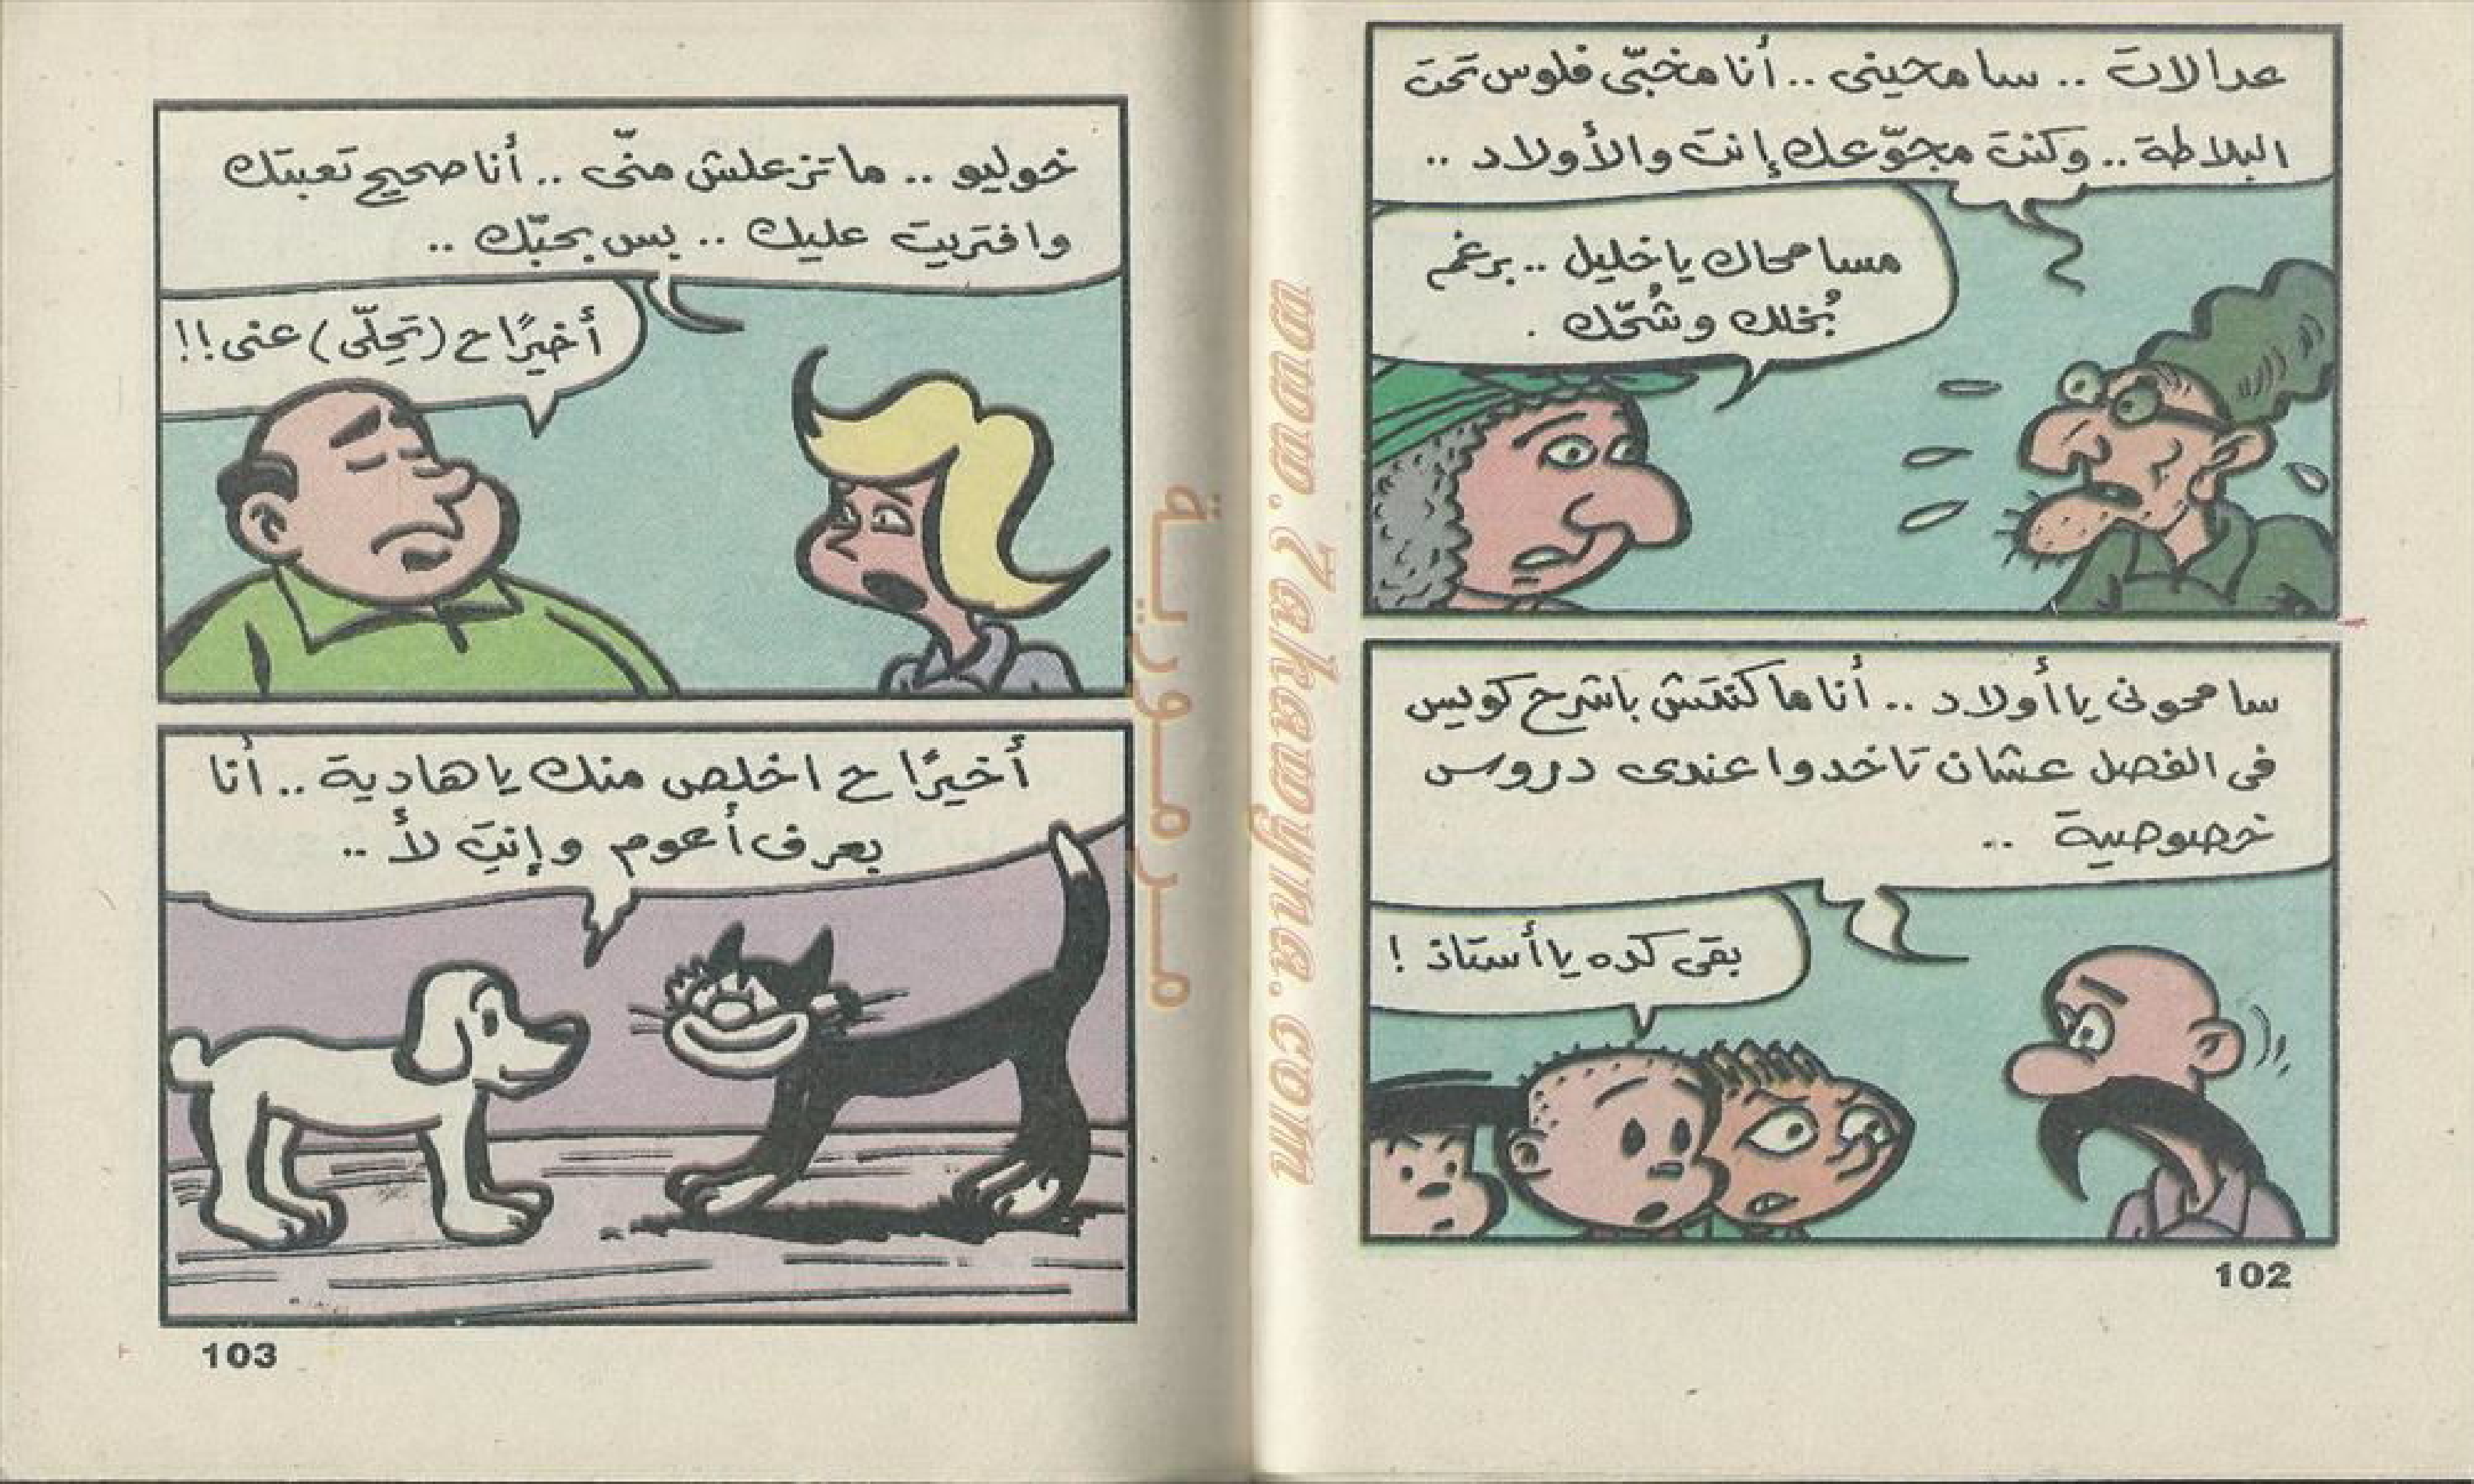 عدالات .. سامحينى .. أنا مخبّى فلوس تحت
البلاطة .. وكنت مجوّعك إنت والأولاد ..
مسامحاك يا خليل .. برغم
بُخلك وشُحّك .
سامحونى يا أولاد .. أنا ماكنتش باشرح كويس
فى الفصل عشان تاخدوا عندى دروس
خصوصية ..
بقى كده يا أستاذ !
102
خوليو .. ماتزعلش منّى .. أنا صحيح تعبتك
وافتريت عليك .. بس بحبّك ..
أخيرًا ح (تحِلّى) عنى !!
أخيرًا ح اخلص منك يا هادية .. أنا
بعرف أعوم وإنتِ لأ ..
103
مرمورية
www.7akawyna.com